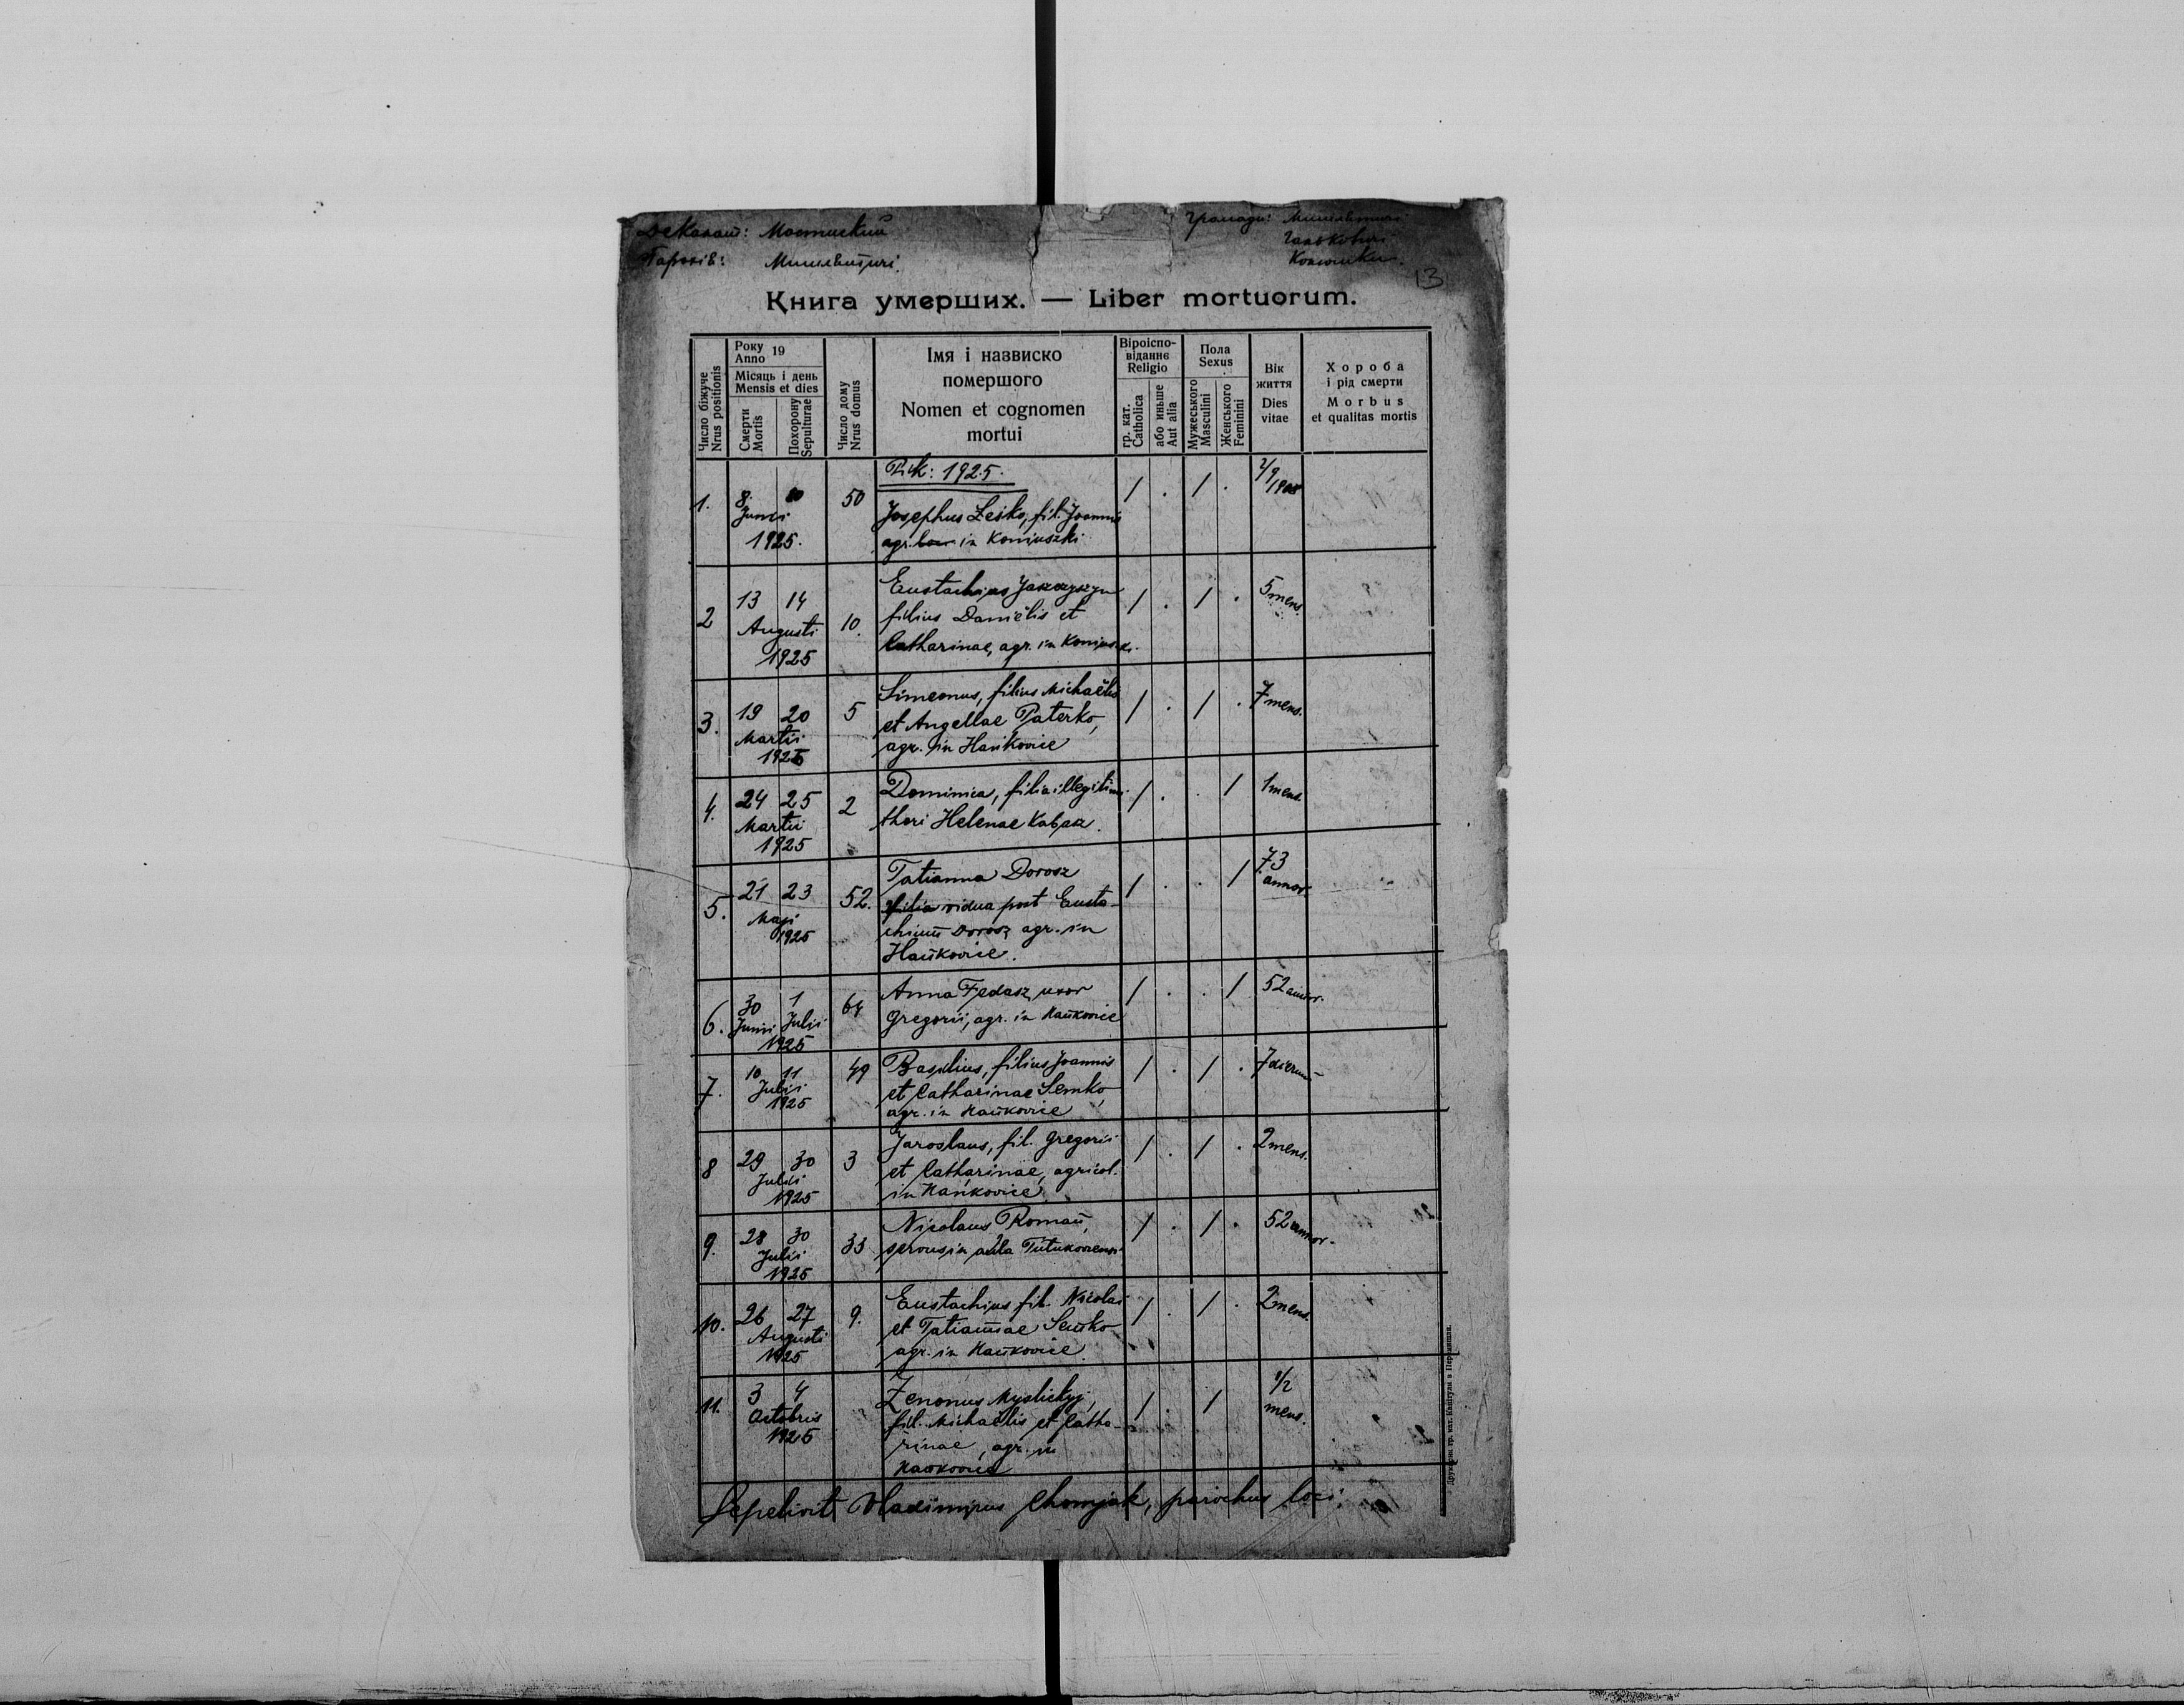 Деканат: Мостиский
Громади: Мишлятичі
Ганьковичі
Конюшки.
Парохія: Мишлятичі.
13
Книга умерших. — Liber mortuorum.
Число біжуче
Nrus positionis
Року
Anno 19
Місяць і день
Mensis et dies
Смерти
Mortis
Похорону
Sepulturae
Число дому
Nrus domus
Імя і назвиско
помершого
Nomen et cognomen
mortui
Віроіспо-
відання
Religio
гр. кат.
Catholica
або инъше
Aut alia
Пола
Sexus
Мужеського
Masculini
Женського
Feminini
Вік
життя
Dies
vitae
Хороба
і рід смерти
Morbus
et qualitas mortis
Рік: 1925.
1. 8. 10 50 / . / . 2/9
Junii 1908
1925.
Josephus Leśko, fil. Joannis
agr. in Koniuszki
2 13 14 10. Eustachius / . / . 5 mens.
Augusti filius Daniëlis et
1925 Catharinae, agr. in Koniuszk.
3. 19 20 5 Simeonus, filius Michaëlis / . / . 7 mens.
Martii et Angellae Paterko,
1925 agr. in Hańkowice
4. 24 25 2 Dominica, filia illegitimi / . . / 1 mens.
Martii thori Helenae Kabak.
1925
5. 21 23 52. Tatianna Dorosz / . . / 73
Maji filia vidua post Eusta- annor.
1925 chium Dorosz agr. in
Hańkowice.
6. 30 1 64 Anna Fedasz, uxor / . . / 52 annor.
Junii Julii Gregorii, agr. in Hańkowice
1925
7. 10 11 49 Basilius, filius Joannis / . / . 7 dierum
Julii et Catharinae Semko,
1925 agr. in Hańkowice
8 29 30 3 Jaroslaus, fil. Gregorii / . / . 2 mens.
Julii et Catharinae, agricol.
1925 in Hańkowice.
9. 28 30 33 Nicolaus Romań, / . / . 52 annor.
Julii servus in aula
1925
10. 26 27 9. Eustachius fil. Nicolai / . / . 2 mens.
Augusti et Tatiannae Semko
1925 agr. in Hańkowice.
11. 3 4 Zenonus Myslickyj, / . / 1/2
Octobris fil. Michaëlis et Catha- mens.
1925 rinae, agr. in
Hańkowice
Sepelivit Vladimirus Chomjak, parochus loci.
Друкарня гр. кат. Капітули в Перемишли.